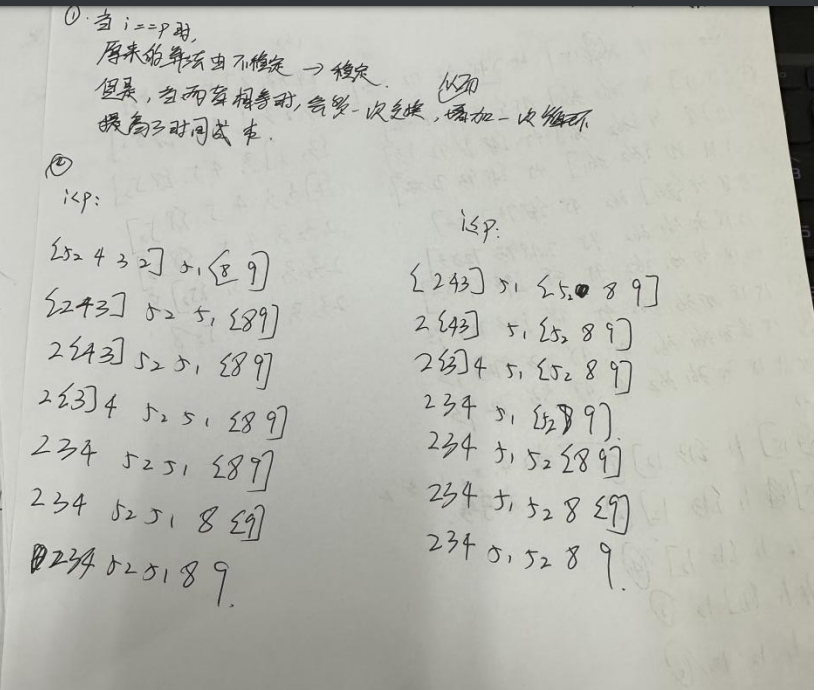 ①. 当 i==p 时,
原来的算法由不稳定 → 稳定.
但是, 当两者相等时, 会多一次交换, 增加一次循环
提高了时间成本.
②
i<p:
[5₂ 4 3 2] 5₁ [8 9]
[2 4 3] 5₂ 5₁ [8 9]
2 [4 3] 5₂ 5₁ [8 9]
2 [3] 4 5₂ 5₁ [8 9]
2 3 4 5₂ 5₁ [8 9]
2 3 4 5₂ 5₁ 8 [9]
2 3 4 5₂ 5₁ 8 9.
i≤p:
[2 4 3] 5₁ [5₂ 8 9]
2 [4 3] 5₁ [5₂ 8 9]
2 [3] 4 5₁ [5₂ 8 9]
2 3 4 5₁ [5₂ 8 9].
2 3 4 5₁ 5₂ [8 9]
2 3 4 5₁ 5₂ 8 [9]
2 3 4 5₁ 5₂ 8 9.